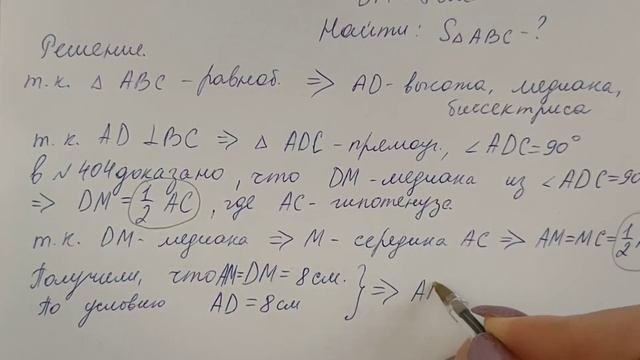 Найти: S△ABC-?
Решение.
т.к. △ ABC - равноб. => AD - высота, медиана,
биссектриса
т.к. AD ⊥ BC => △ ADC - прямоуг., ∠ADC=90°
в №404 доказано, что DM - медиана из ∠ADC=90
=> DM = 1/2 AC, где AC - гипотенуза.
т.к. DM - медиана => M - середина AC => AM=MC= 1/2
Получили, что AM=DM = 8 см.
По условию AD = 8 см } => AM